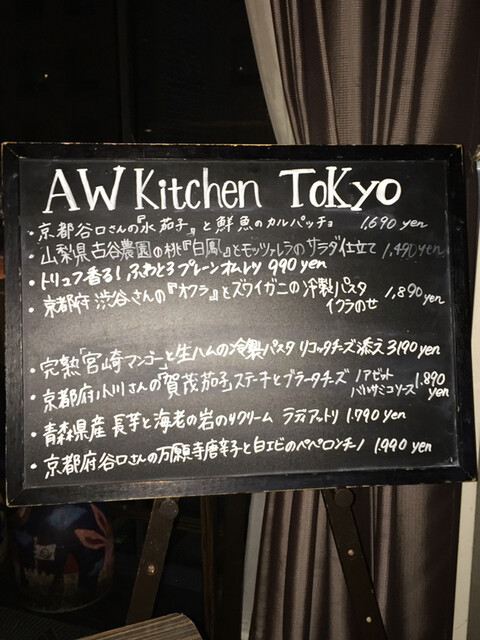 AW Kitchen ToKyo
・京都谷口さんの『水茄子』と鮮魚のカルパッチョ 1,690 yen
・山梨県古谷農園の桃『白鳳』とモッツァレラのサラダ仕立て 1,490 yen
・トリュフ香る!ふわとろプレーンオムレツ 990 yen
・京都府 渋谷さんの『オクラ』とズワイガニの冷製パスタ 1,890 yen
イクラのせ
・完熟「宮崎マンゴー」と生ハムの冷製パスタ リコッタチーズ添え 3190 yen
・京都府小川さんの「賀茂茄子」ステーキとブラータチーズ バルサミコソース 1.890 yen
・青森県産 長芋と海老の岩のりクリーム ラディアットリ 1.790 yen
・京都府谷口さんの万願寺唐辛子と白エビのペペロンチーノ 1.990 yen